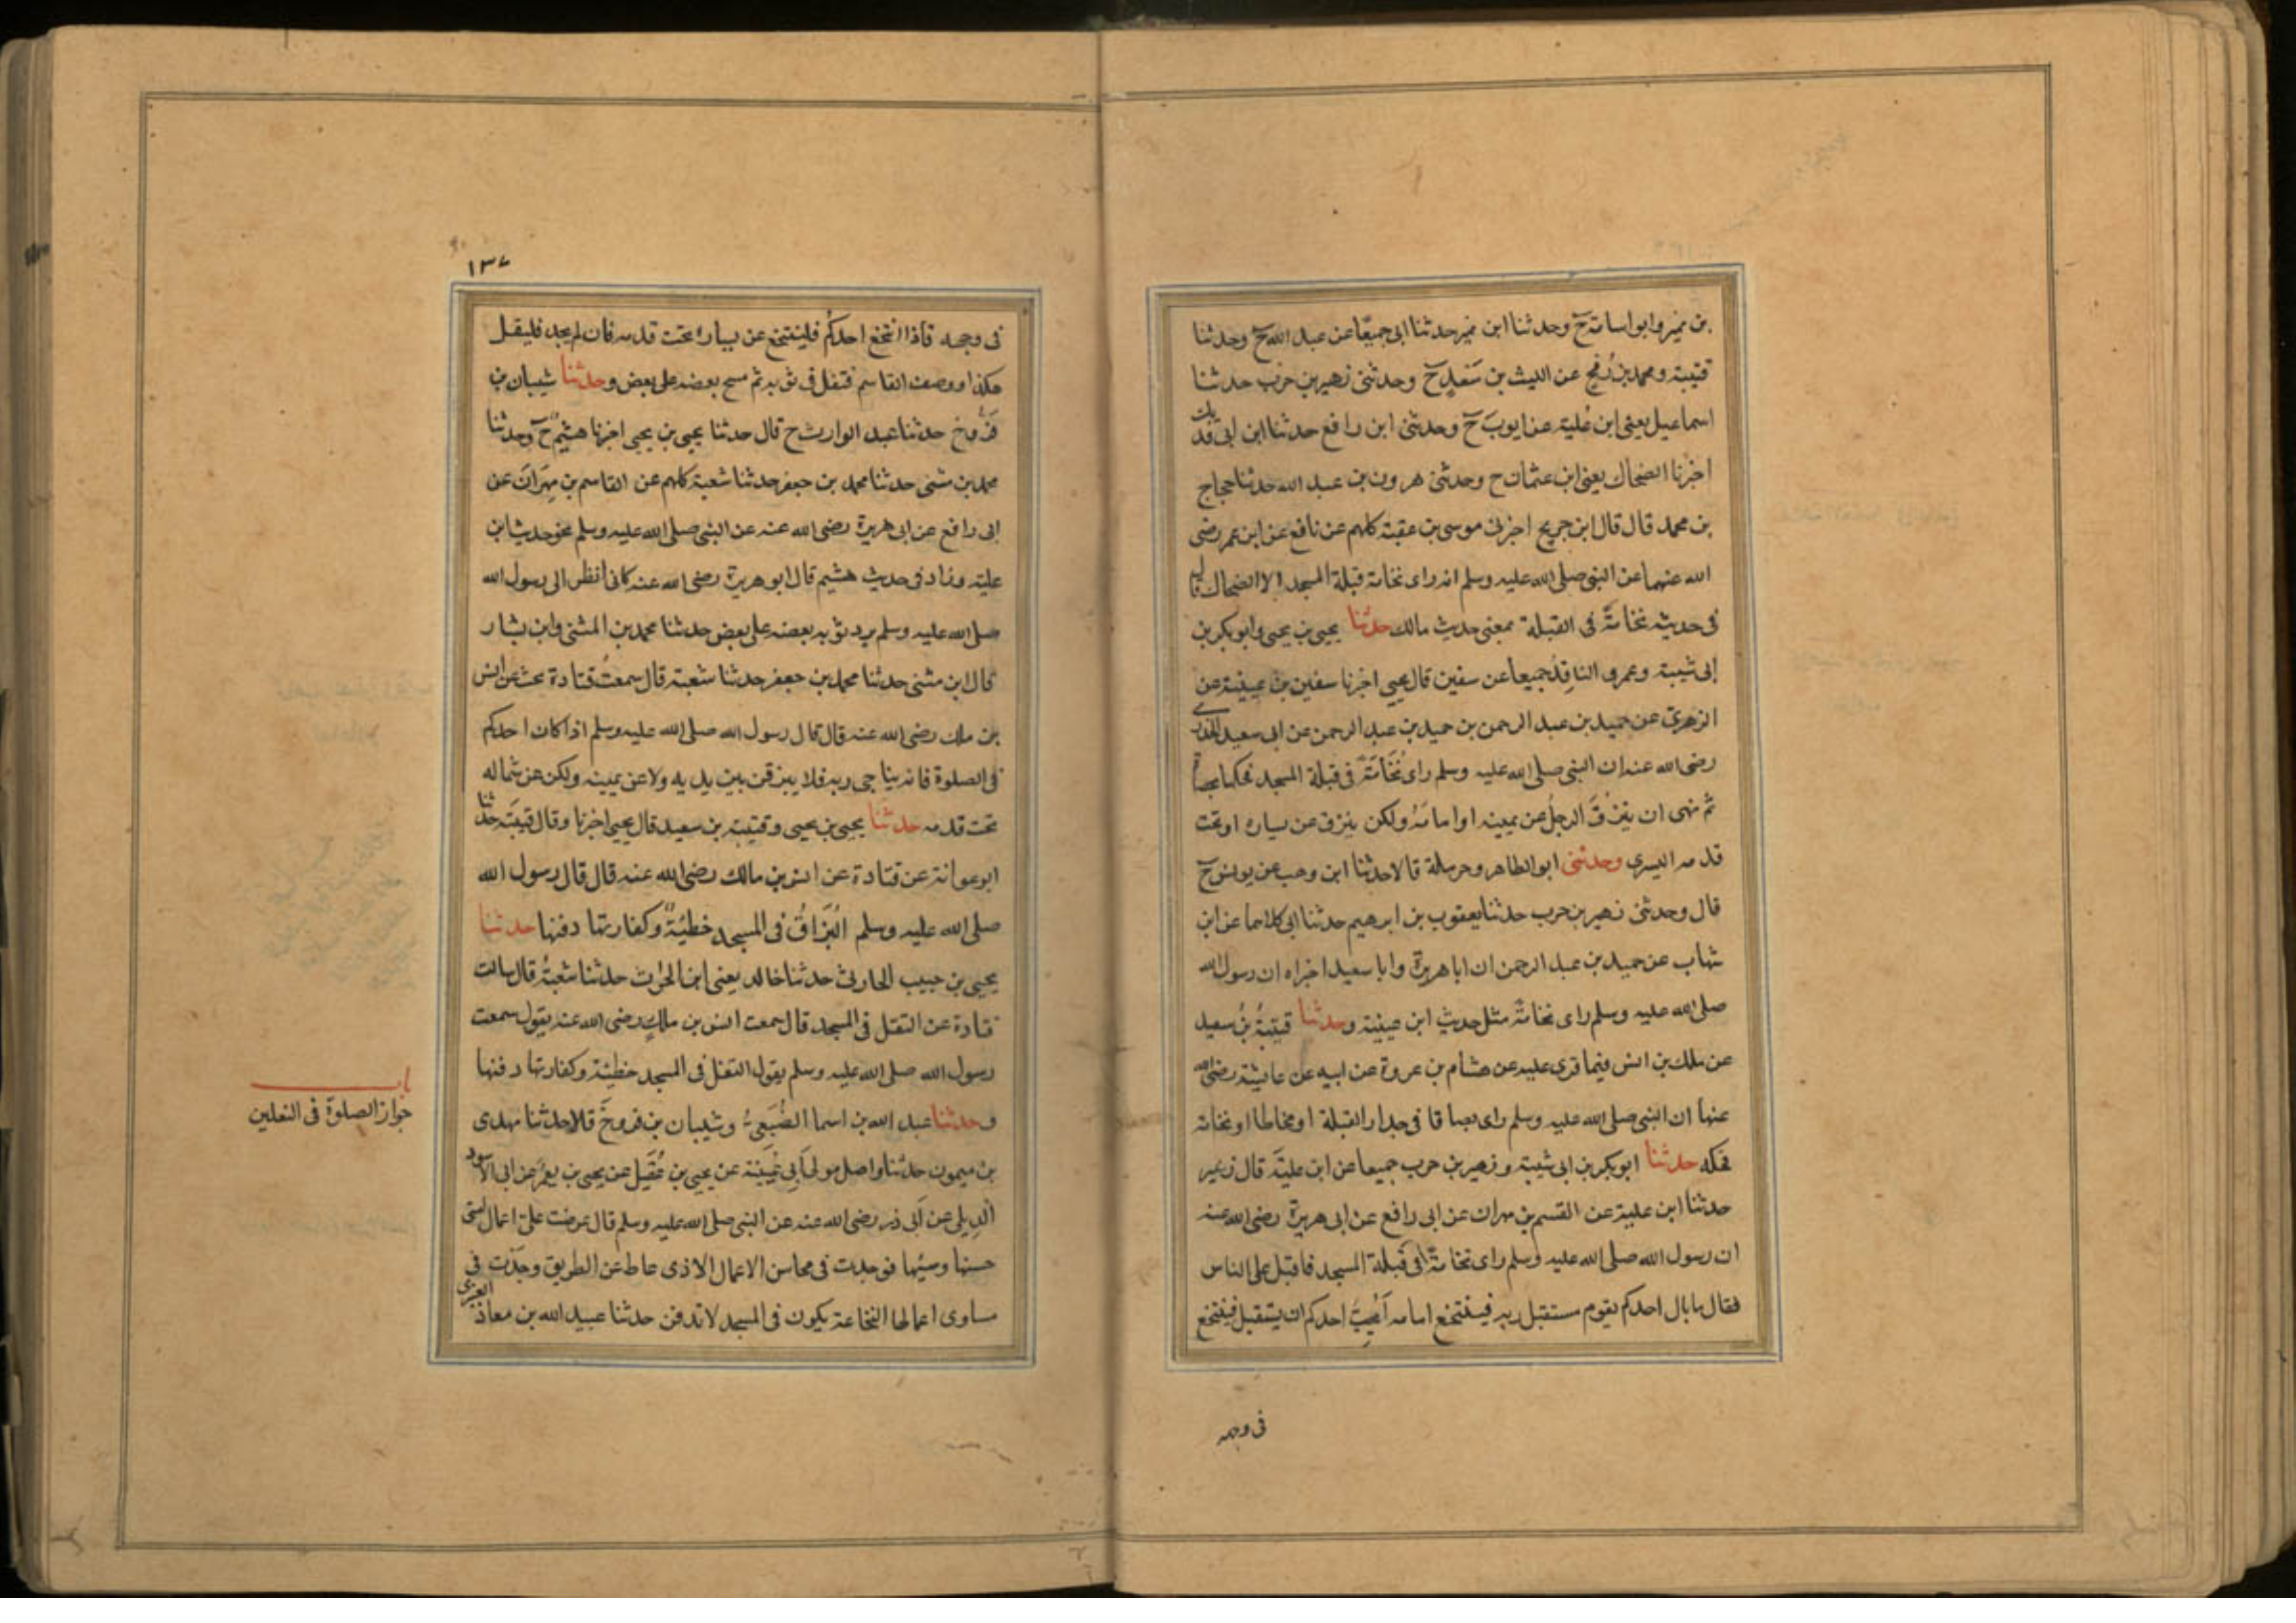 بن نمير وابو اسامة ح وحدثنا ابن نمير حدثنا ابى جميعًا عن عبد الله ح وحدثنا
قتيبة ومحمد بن رُمح عن الليث بن سَعدٍ ح وحدثنى زهير بن حرب حدثنا
اسماعيل يعنى ابن عُلية عن ايوبَ ح وحدثنى ابن رافع حدثنا ابن ابى فديك
اخبرنا الضحاك يعنى ابن عثمان ح وحدثنى هرون بن عبد الله حدثنا حجاج
بن محمد قال قال ابن جريج اخبرنى موسى بن عقبة كلهم عن نافع عن ابن عمر رضى
الله عنهما عن النبى صلى الله عليه وسلم انه راى نخامة قبلة المسجد الا الضحاك قال
فى حديثه نخامةً فى القبلة بمعنى حديث مالك حدثنا يحيى بن يحيى وابو بكر بن
ابى شيبة وعمرو الناقدُ جميعا عن سفين قال يحيى اخبرنا سفين بن عيينة عن
الزهرىّ عن حميد بن عبد الرحمن بن حميد بن عبد الرحمن عن ابى سعيد الخدرى
رضى الله عنه ان النبى صلى الله عليه وسلم راى نُخَامَةً فى قبلة المسجد فحكها بحصاة
ثم نهى ان يبزُقَ الرجلُ عن يمينه او امامَهُ ولكن يبزق عن يساره او تحت
قدمه اليسرى وحدثنى ابو الطاهر وحرملة قالا حدثنا ابن وهب عن يونس ح
قال وحدثنى زهير بن حرب حدثنا يعقوب بن ابرهيم حدثنا ابى كلاهما عن ابن
شهاب عن حميد بن عبد الرحمن ان ابا هريرة وابا سعيد اخبراه ان رسول الله
صلى الله عليه وسلم راى نخامةً مثل حديث ابن عيينة وحدثنا قتيبةُ بنُ سعيد
عن ملك بن انس فيما قرى عليه عن هشام بن عروة عن ابيه عن عايشة رضى الله
عنها ان النبى صلى الله عليه وسلم راى بصاقا فى جدار القبلة او مخاطا او نخامة
فحكه حدثنا ابو بكر بن ابى شيبة وزهير بن حرب جميعا عن ابن عليَّة قال زهير
حدثنا ابن علية عن القسم بن مهران عن ابى رافع عن ابى هريرة رضى الله عنه
ان رسول الله صلى الله عليه وسلم راى نخامةً فى قبلة المسجد فاقبل على الناس
فقال ما بال احدكم يقوم مستقبل ربه فيتنخع امامه اَيُحِبُّ احدكم ان يستقبل فيتنخع
فى وجهه
١٣٧
فى وجهه فاذا انتخع احدكُم فلينتخع عن يساره تحت قدمه فان لم يجد فليقل
هكذا ووصف القاسم فتفل فى ثوبه ثم مسح بعضه على بعض وحدثنا شيبان بن
فَرُّوخ حدثنا عبد الوارث ح قال حدثنا يحيى بن يحيى اخبرنا هشيم ح وحدثنا
محمد بن مثنى حدثنا محمد بن جعفر حدثنا شعبة كلهم عن القاسم بن مِهرَانَ عن
ابى رافع عن ابى هريرة رضى الله عنه عن النبى صلى الله عليه وسلم نحو حديث ابن
علية وزاد فى حديث هشيم قال ابو هريرة رضى الله عنه كانى انظر الى رسول الله
صلى الله عليه وسلم يرد ثوبه بعضه على بعض حدثنا محمد بن المثنى وابن بشار
قال ابن مثنى حدثنا محمد بن جعفر حدثنا شعبة قال سمعتُ قتادة يحدث عن انس
بن ملك رضى الله عنه قال قال رسول الله صلى الله عليه وسلم اذا كان احدكم
فى الصلوة فانه يناجى ربه فلا يبزقن بين يديه ولا عن يمينه ولكن عن شماله
تحت قدمه حدثنا يحيى بن يحيى وقتيبة بن سعيد قال يحيى اخبرنا وقال قتيبَة حدثنا
ابو عوانة عن قتادة عن انس بن مالك رضى الله عنه قال قال رسول الله
صلى الله عليه وسلم اُلبُزَاقُ فى المسجد خطيئةٌ وكفارتها دفنها حدثنا
يحيى بن حبيب الحارثى حدثنا خالد يعنى ابن الحرث حدثنا شعبةُ قال سالت
قتادة عن التفل فى المسجد قال سمعت انس بن ملكٍ رضى الله عنه يقول سمعت
رسول الله صلى الله عليه وسلم يقول التفل فى المسجد خطيئة وكفارتها دفنها
وحدثنا عبد الله بن اسما الضُبَعِىُّ وشيبان بن فروخَ قالا حدثنا مهدى
بن ميمون حدثنا واصل مولى اَبِى عُيَينَة عن يحيى بن عُقَيل عن يحيى بن يعمَر عن ابى الاسود
الدِيلى عن اَبى ذر رضى الله عنه عن النبى صلى الله عليه وسلم قال عرضت علىّ اعمال امتى
حسنها وسيئها فوجدت فى محاسن الاعمال الاذى يماط عن الطريق وجَدْت فى
مساوى اعمالها النخاعة يكون فى المسجد لا تدفن حدثنا عبيد الله بن معاذ العنبرى
باب
جواز الصلوة فى النعلين